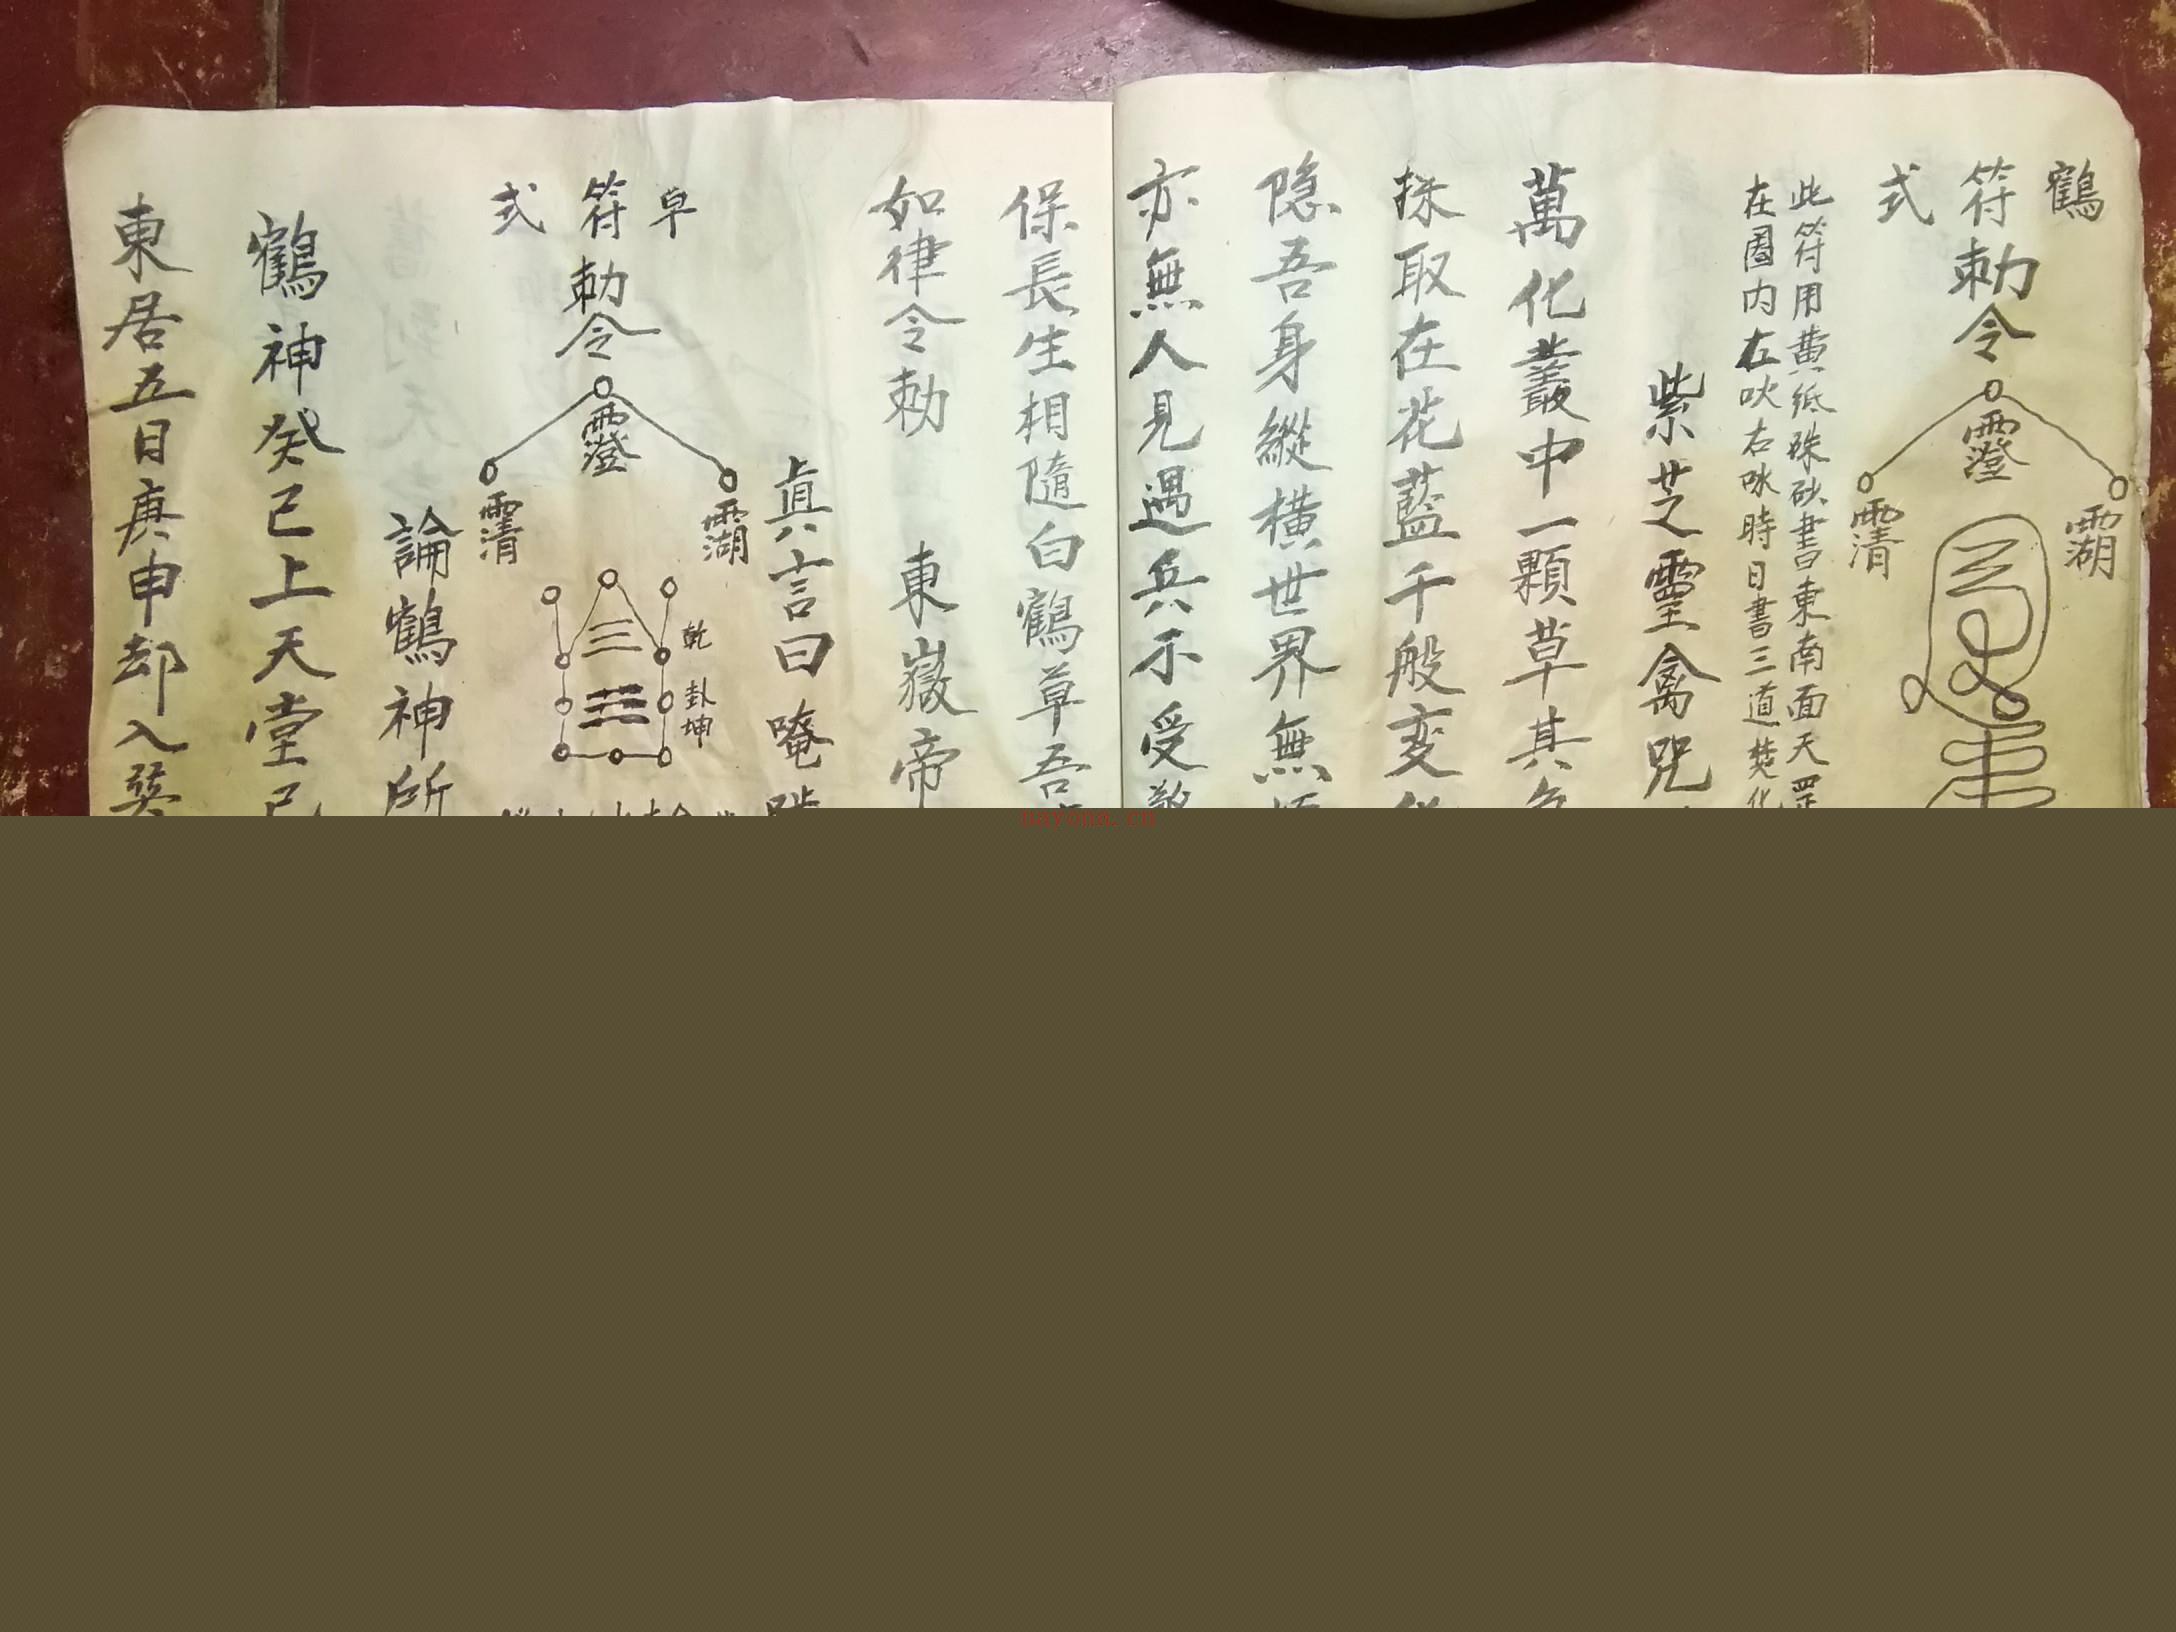 鶴
符
式
勅令
靈
湖
清
此符用黄紙硃砂書東南面天罡
在圈内左吹右咏時日書三道焚化
紫芝靈禽咒
萬化叢中一顆草其色
採取在花藍千般变化
隐吾身縱橫世界無
亦無人見遇兵不受
保長生相隨白鶴草吾
如律令勅 東嶽帝
真言曰唵
卓
符
式
勅令
乾
卦坤
論鶴神所
鶴神癸巳上天堂己
東居五日庚申却入巽
nayona.cn